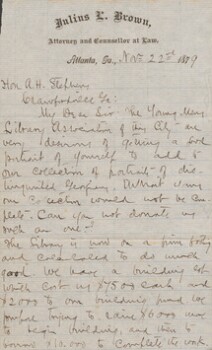 Julius L. Brown,
Attorney and Counsellor at Law.
Atlanta, Ga., Nov 22nd 1879
Hon A. H. Stephens
Crawfordville Ga:
My Dear Sir The Young Mens
Library Association of this City are
very desirous of getting a good
portrait of yourself to add to
our collection of portraits of distinguished Georgians. Without yours
our collection would not be complete. Can you not donate us
with an one?
The Library is now on a firm footing
and calculated to do much
good. We have a building lot
which cost us $7500 cash and
$2000 to our building fund. We
propose trying to raise $6000 more
to begin building, and then to
borrow $10.000 to complete the work.